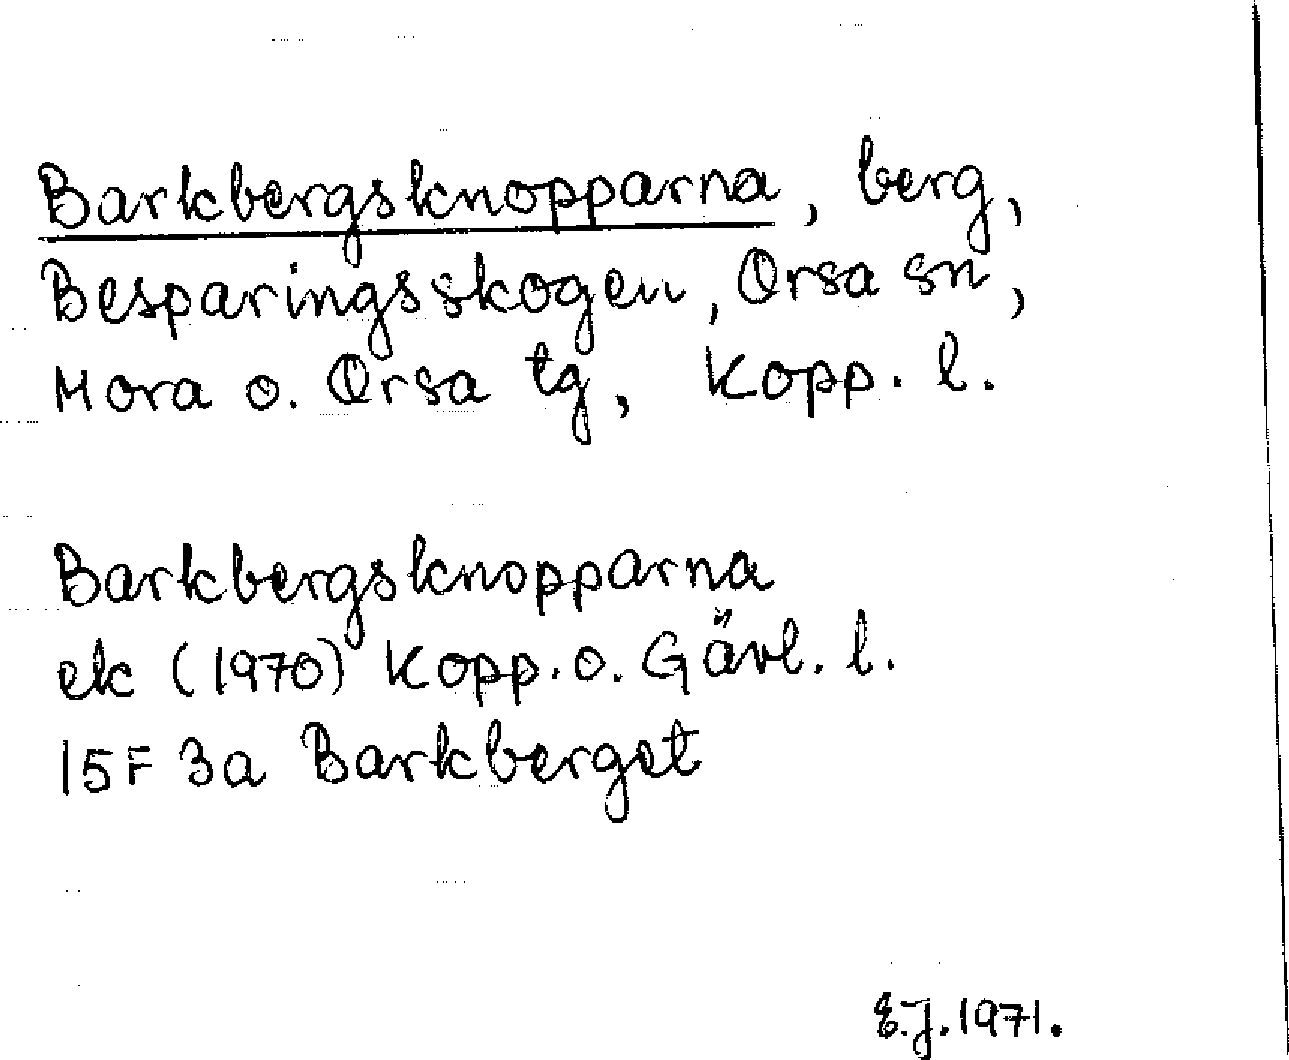 Barkbergsknopparna, berg,
Besparingsskogen, Orsa sn,
Mora o. Orsa tg, Kopp. l.
Barkbergsknopparna
ek (1970) Kopp. o. Gävl. l.
15F 3a Barkberget
E.J. 1971.